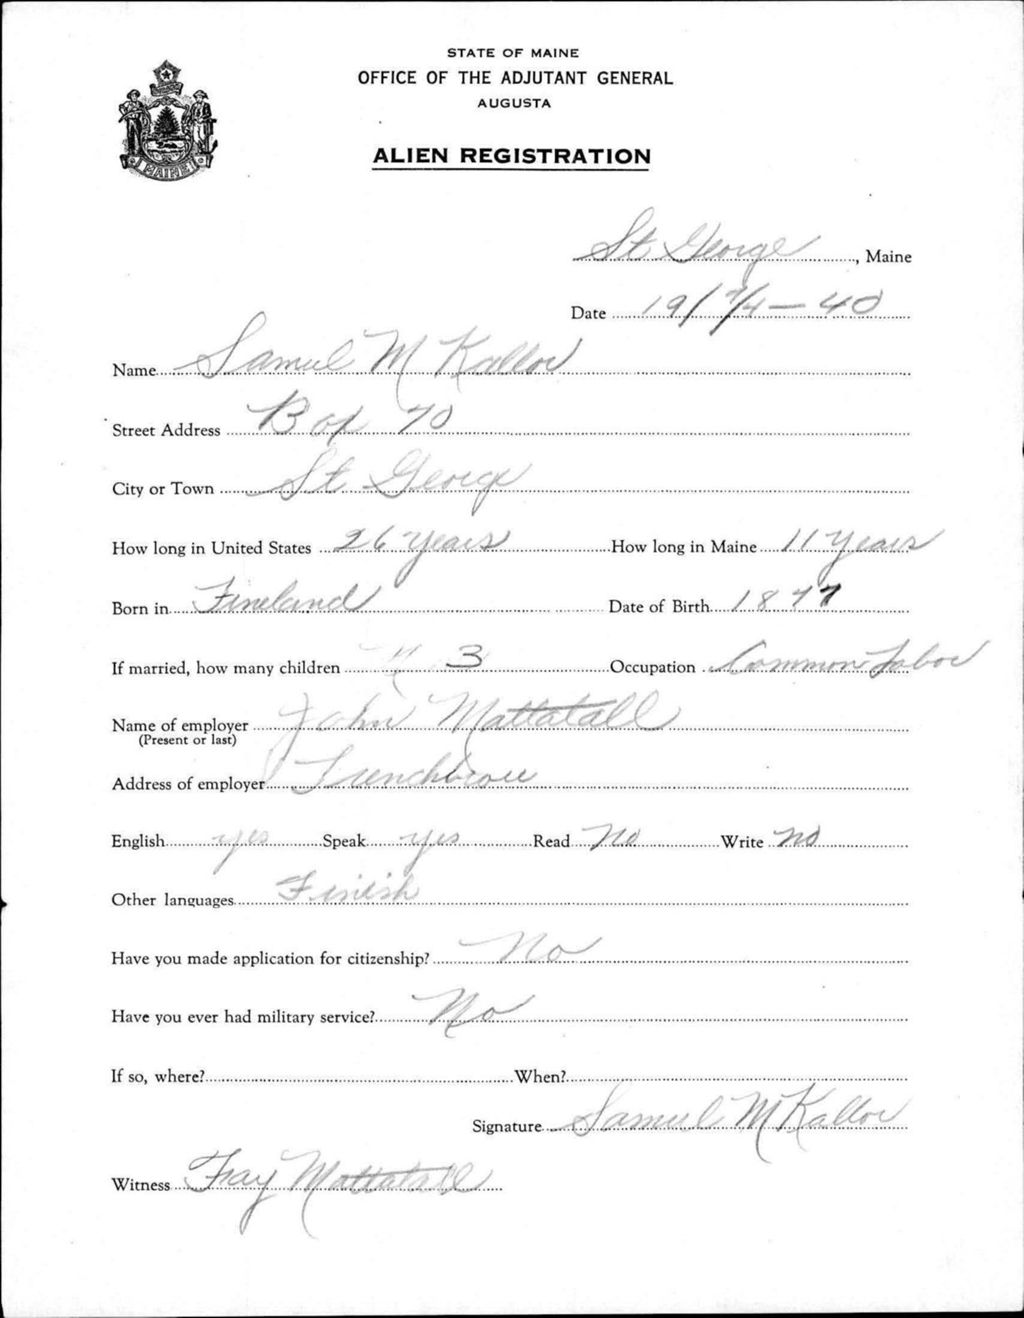 STATE OF MAINE
OFFICE OF THE ADJUTANT GENERAL
AUGUSTA
ALIEN REGISTRATION
MAINE
St George, Maine
Date 19/7/4-40
Name Samuel M Kallov
Street Address Box 70
City or Town St George
How long in United States 26 years How long in Maine 11 years
Born in Fineland Date of Birth 1877
If married, how many children 3 Occupation Common Labor
Name of employer John Mattatall
(Present or last)
Address of employer
English yes Speak yes Read No Write no
Other languages Finish
Have you made application for citizenship? No
Have you ever had military service? No
If so, where? When?
Signature Samuel M Kallov
Witness Fray Mattatall